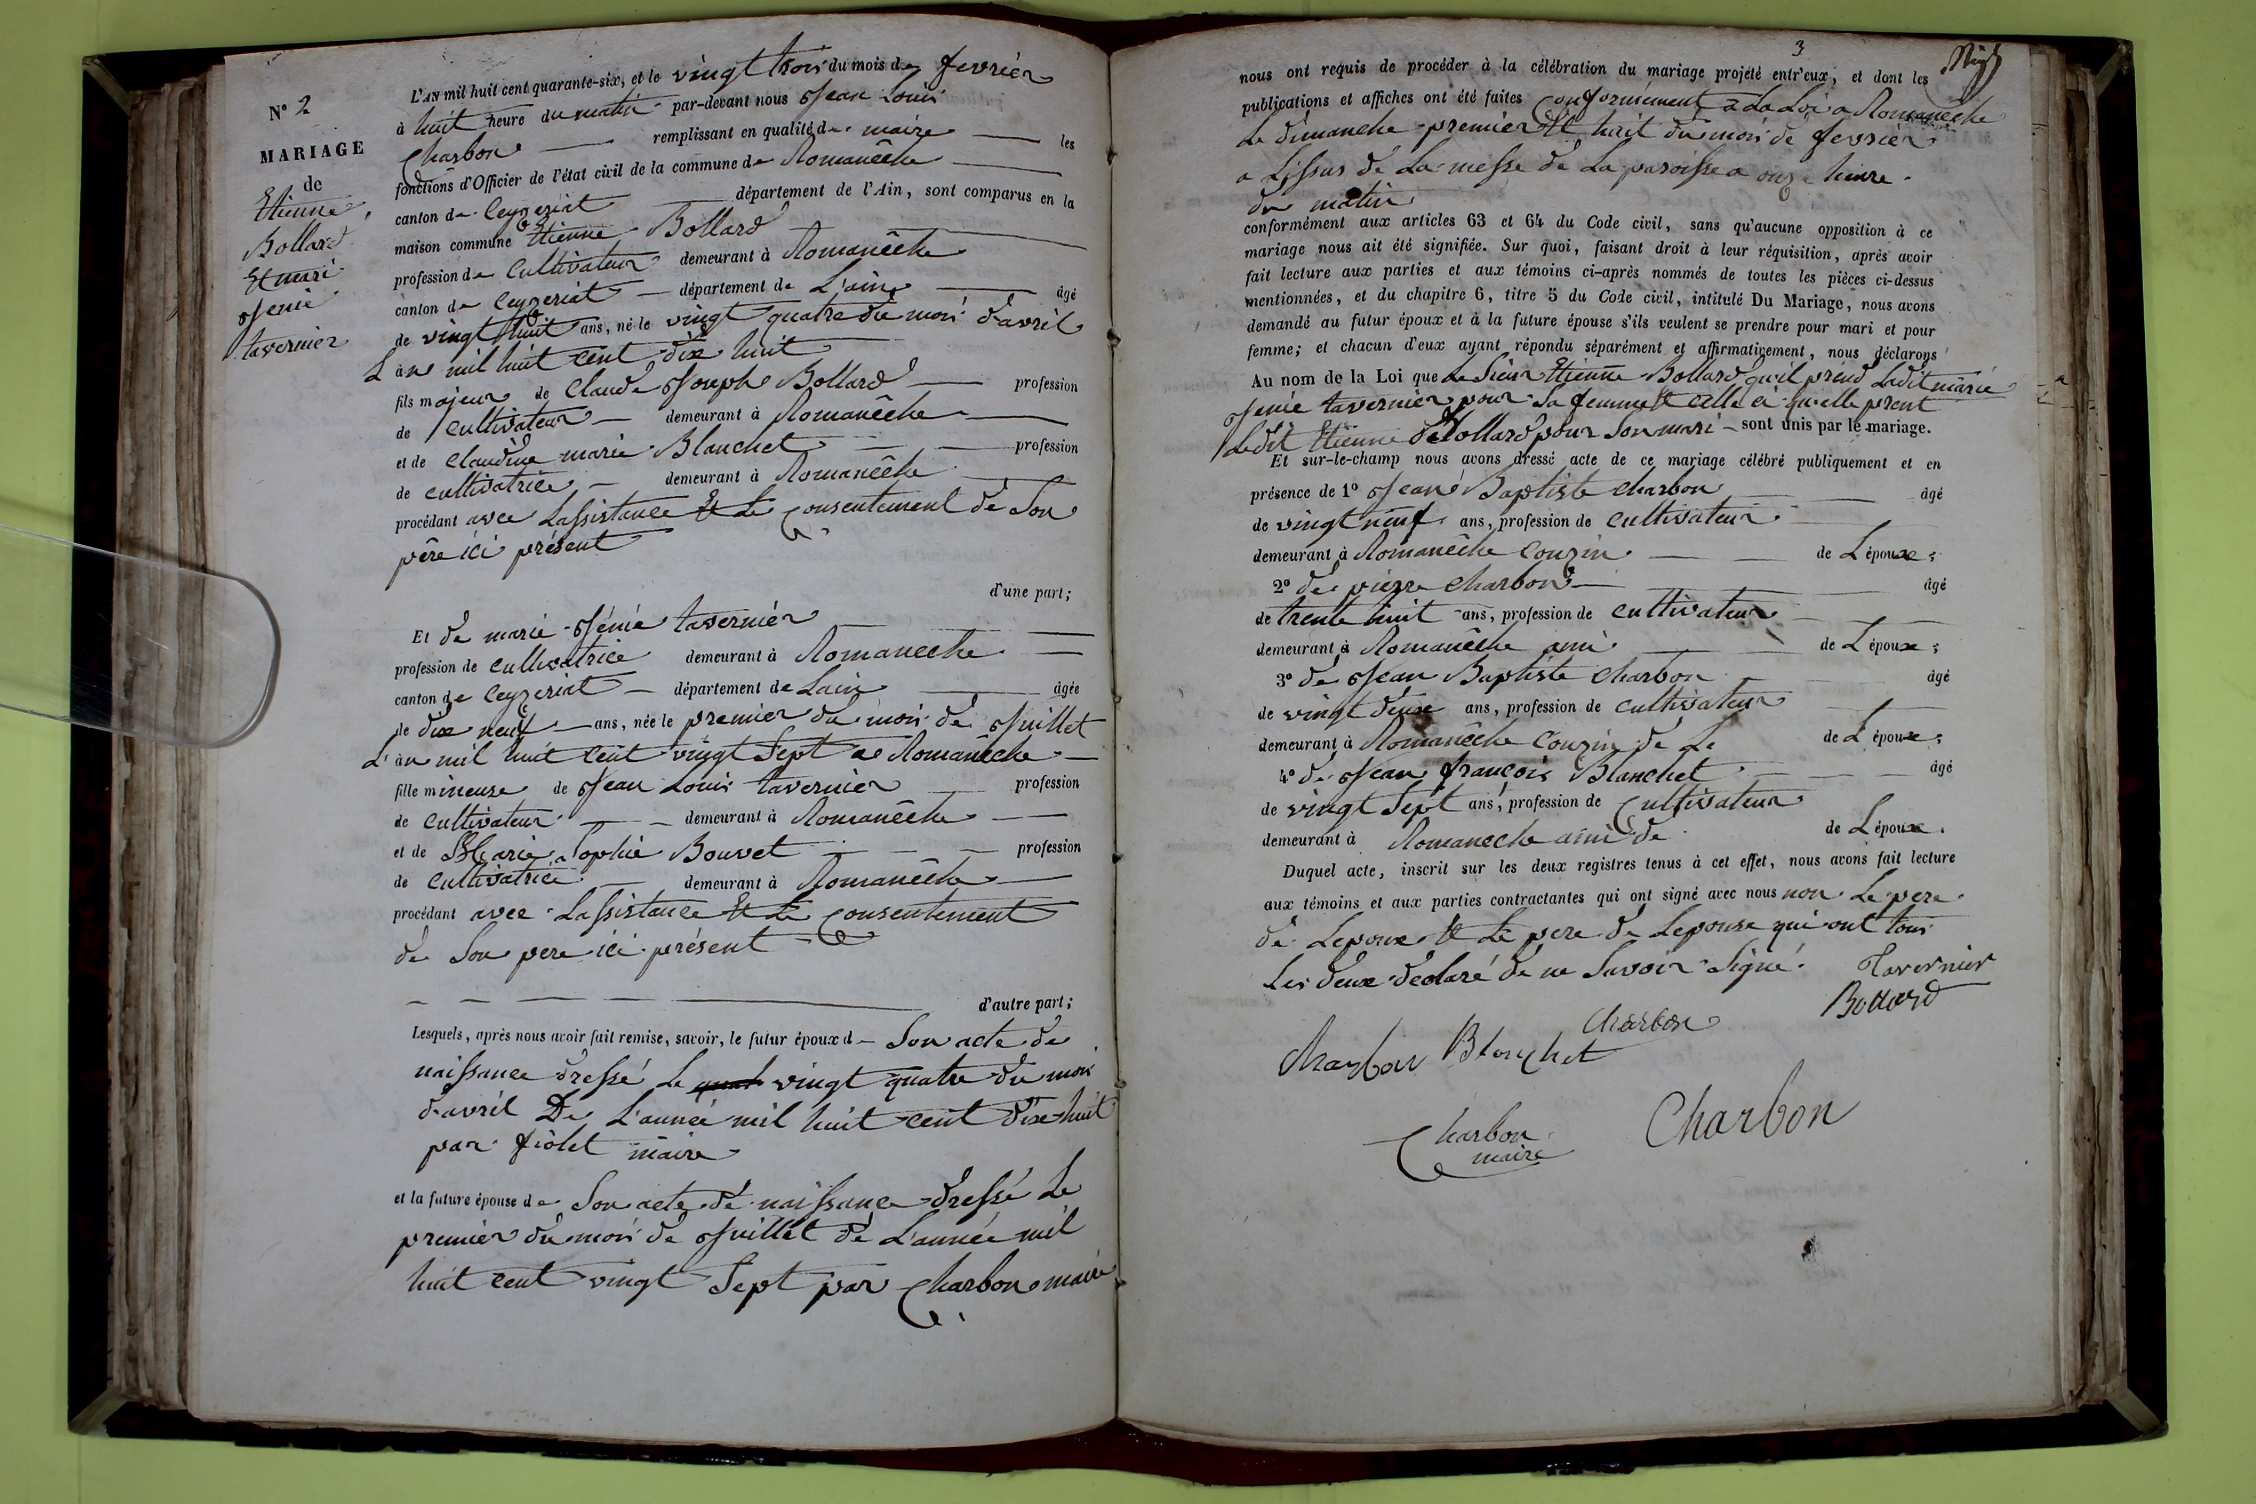 N° 2
MARIAGE
de
Etienne
Bollard
Et mari
Jenie
tavernier
L'AN mil huit cent quarante-six, et le vingt trois du mois de fevrier
à huit heure du matin par-devant nous Jean Louis
Charbon remplissant en qualité de maire les
fonctions d'Officier de l'état civil de la commune de Romanêche
canton de Ceyzeriat département de l'Ain, sont comparus en la
maison commune Etienne Bollard
profession de Cultivateur demeurant à Romanêche
canton de Ceyzeriat département de L'ain âgé
de vingt huit ans, né le vingt quatre du mois d'avril
L'àn mil huit cent dix huit
fils majeur de Claude Joseph Bollard profession
de Cultivateur demeurant à Romanêche
et de Claudine marie Blanchet profession
de Cultivatrice demeurant à Romanêche
procédant avec Lassistance Et Le Consentement de Son
père ici présent
d'une part;
Et de marie Jénie tavernier
profession de Cultivatrice demeurant à Romaneche
canton de Ceyzeriat département de Lain âgée
de dix neuf ans, née le premier du mois de Juillet
L'àn mil huit cent vingt Sept a Romanêche
fille mineure de Jean Louis tavernier profession
de Cultivateur demeurant à Romanêche
et de Marie Sophie Bouvet profession
de Cultivatrice demeurant à Romanêche
procédant avec Lassistance Et Le Consentement
de Son pere ici présent
d'autre part;
Lesquels, après nous avoir fait remise, savoir, le futur époux d Son acte de
naissance dressé Le vingt quatre du mois
d'avril De L'année mil huit cent dix huit
par fiolet maire
et la future épouse de Son acte de naissance dressé Le
premier du mois de Juillet de L'année mil
huit cent vingt Sept par Charbon maire
3
nous ont requis de procéder à la célébration du mariage projeté entr'eux, et dont les
publications et affiches ont été faites Conformément a La Loi a Romanêche
Le dimanche premier Et huit du mois de fevrier
a Lissus de La messe de La paroisse a onze heure
du matin
conformément aux articles 63 et 64 du Code civil, sans qu'aucune opposition à ce
mariage nous ait été signifiée. Sur quoi, faisant droit à leur réquisition, après avoir
fait lecture aux parties et aux témoins ci-après nommés de toutes les pièces ci-dessus
mentionnées, et du chapitre 6, titre 5 du Code civil, intitulé Du Mariage, nous avons
demandé au futur époux et à la future épouse s'ils veulent se prendre pour mari et pour
femme; et chacun d'eux ayant répondu séparément et affirmativement, nous déclarons
Au nom de la Loi que Le Sieur Etienne Bollard qu'il prend Ladit marie
Jenie tavernier pour Sa femme Et celle ci qu'elle prent
Ledit Etienne Bollard pour Son mari sont unis par le mariage.
Et sur-le-champ nous avons dressé acte de ce mariage célébré publiquement et en
présence de 1° Jean Baptiste Charbon âgé
de vingt neuf ans, profession de Cultivateur
demeurant à Romanêche Couzin de L époux;
2° de pierre Charbon âgé
de trente huit ans, profession de Cultivateur
demeurant à Romanêche ami de L époux;
3° de Jean Baptiste Charbon âgé
de vingt deux ans, profession de Cultivateur
demeurant à Romanêche Couzin de Le de L époux;
4° de Jean françois Blanchet âgé
de vingt Sept ans, profession de Cultivateur
demeurant à Romaneche ami de de L époux.
Duquel acte, inscrit sur les deux registres tenus à cet effet, nous avons fait lecture
aux témoins et aux parties contractantes qui ont signé avec nous non Le pere
de Lepoux Et Le pere de Lepouse qui ont tous
Les deux declaré de ne Savoir Signé. Tavernier
Bollard
Charbon
Charbon Blanchet
Charbon
maire
Charbon